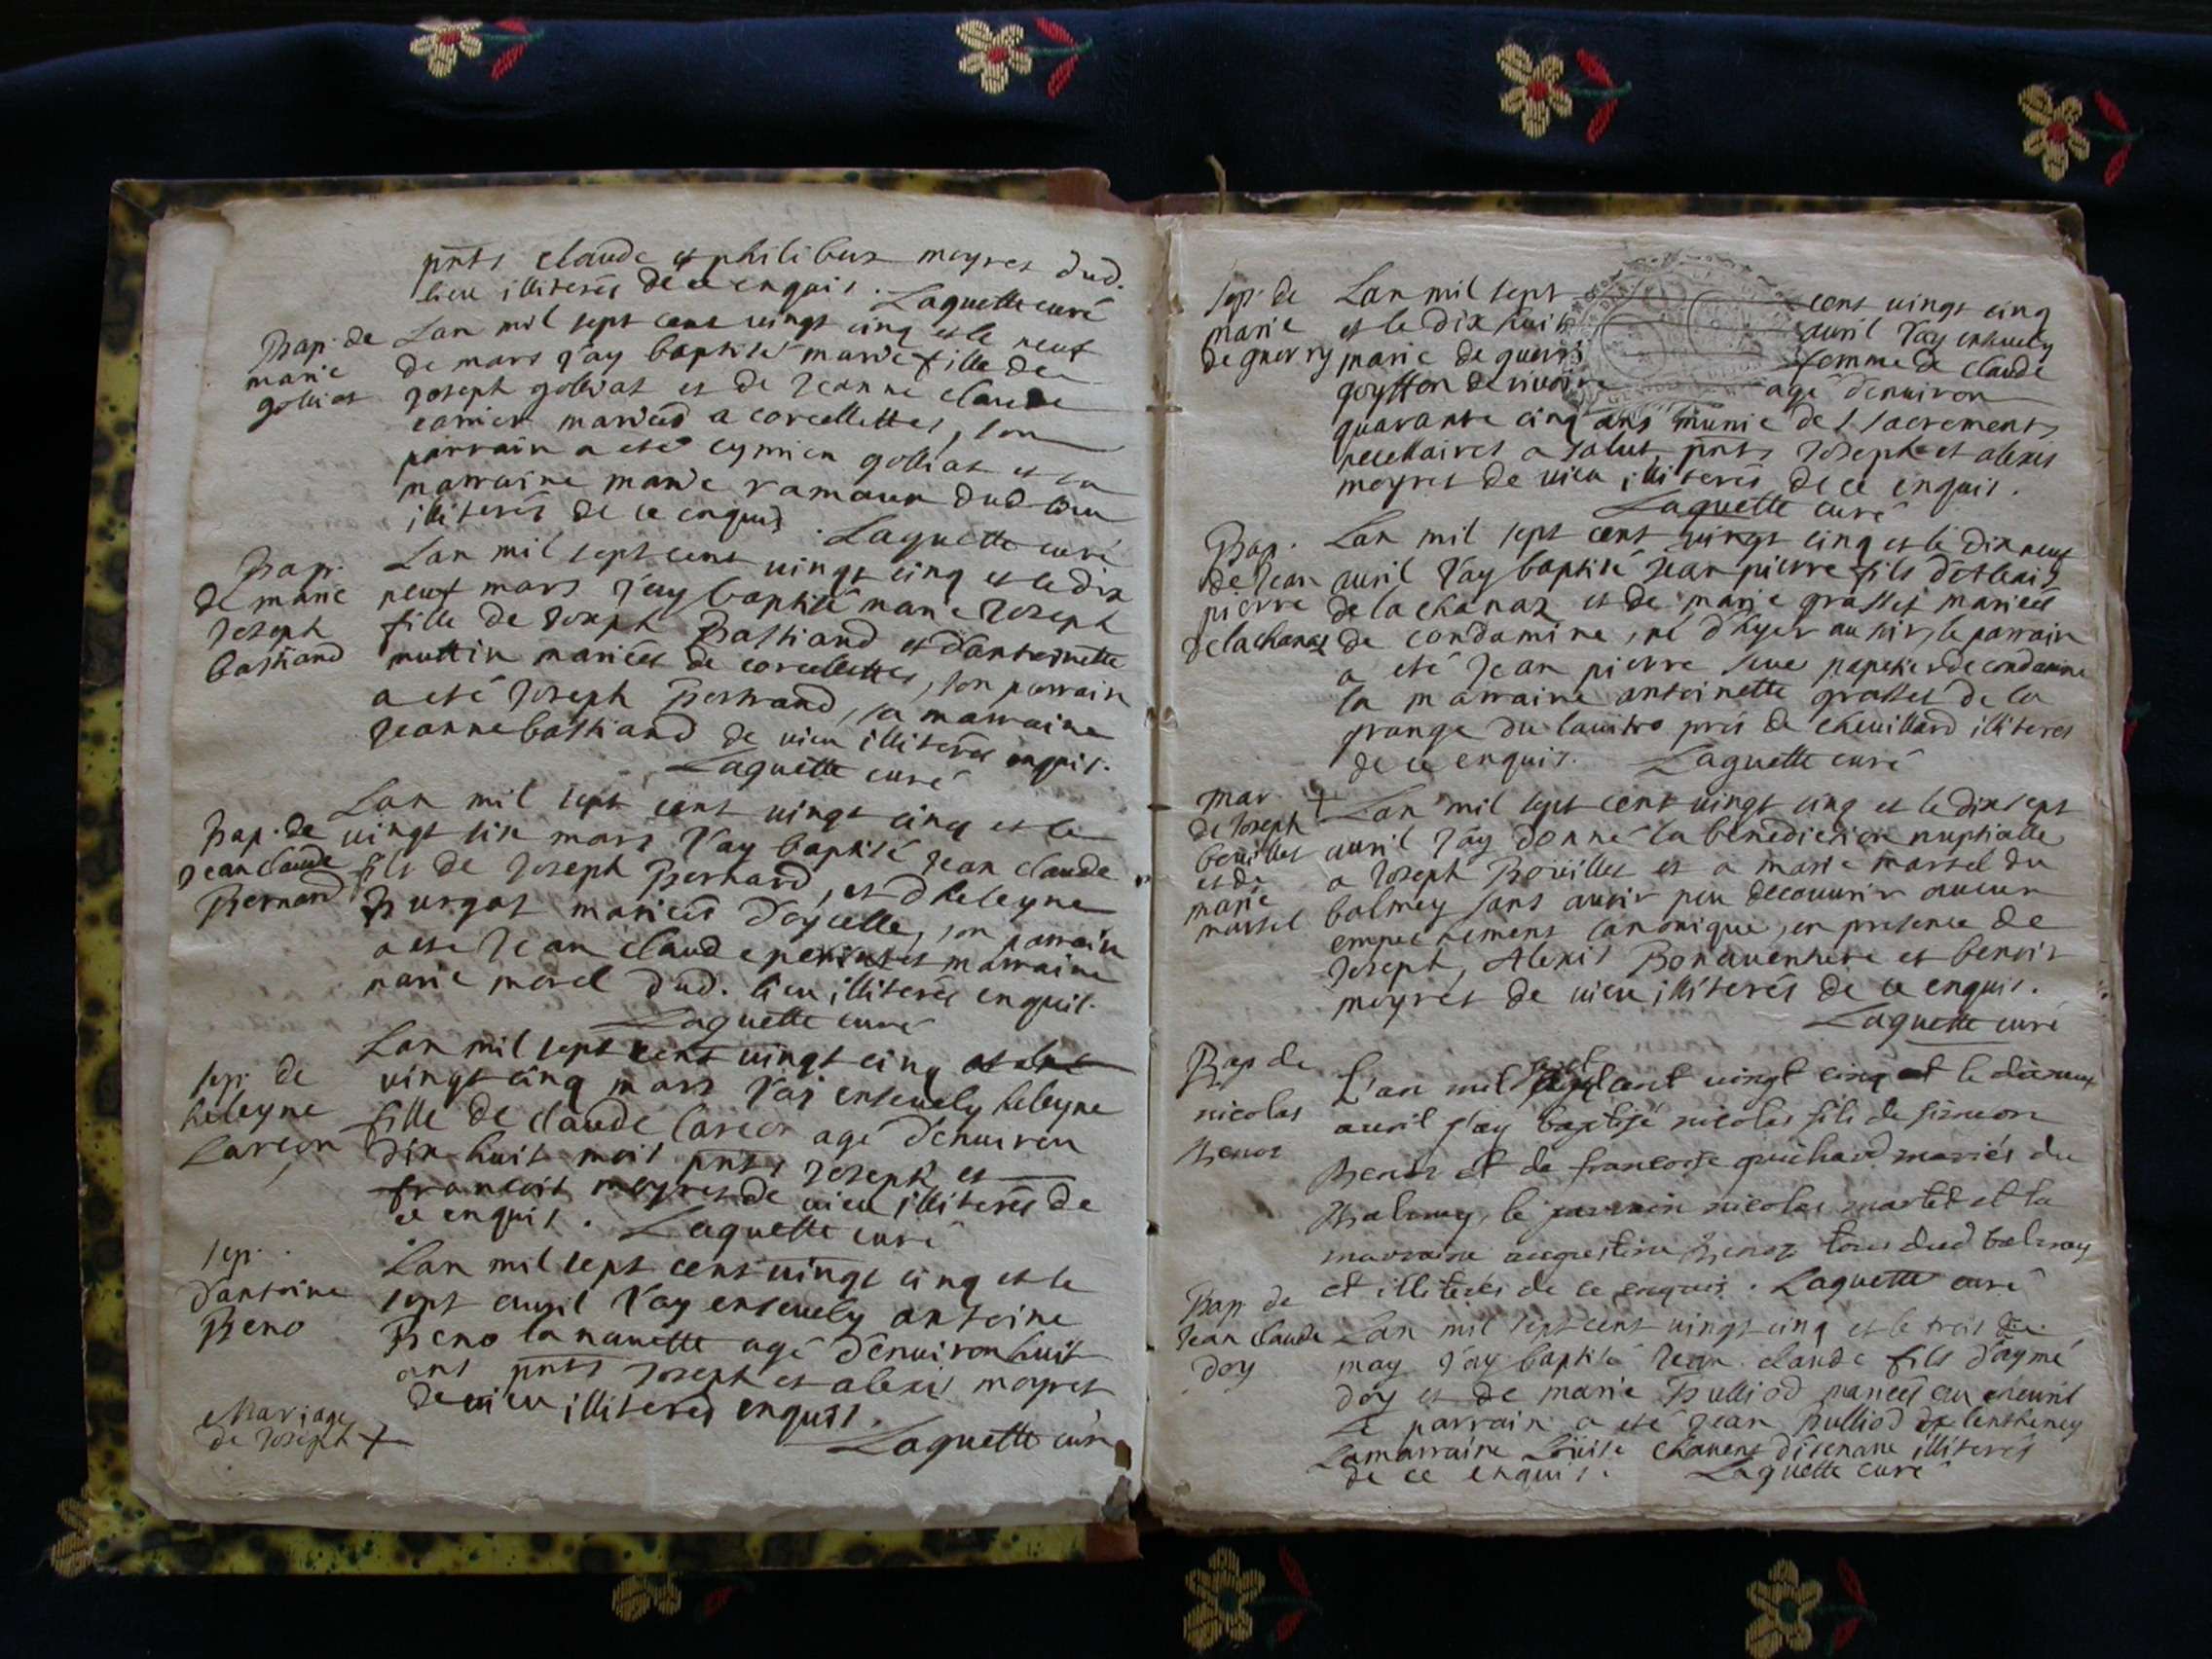 pnts claude et philibers moyret dud.
lieu illiterés de ce enquis. Laguette curé
Bap. de
marie
golliat
Lan mil sept cens vingt cinq et le neuf
de mars J'ay baptisé marie fille de
Joseph golliat et de Jeanne claude
mariés a corcellettes, son
parrain a eté golliat et sa
marraine marie dud lieu
illiterés de ce enquis. Laguette curé
Bap.
de marie
Joseph
bastiand
Lan mil sept cens vingt cinq et le dix
neuf mars J'ay baptisé marie Joseph
fille de Joseph Bastiand et d'antoinette
muttin mariés de corcellettes, son parrain
a eté Joseph Bertrand, sa marraine
Jeanne bastiand de vieu illiterés enquis.
Laguette curé
Bap. de
Jean claude
Bernard
Lan mil sept cens vingt cinq et le
vingt six mars J'ay baptisé Jean claude
fils de Joseph Bernard, et d'heleyne
Burgat mariés d'oycelle, son parrain
a eté Jean claude et marraine
marie morel dud. lieu illiterés enquis.
Laguette curé
sep. de
heleyne
Carcon
Lan mil sept cens vingt cinq
vingt cinq mars J'ay ensevely heleyne
fille de claude Carcon agé d'environ
dix huit mois pnts Joseph et
francois moyret de vieu illiterés de
ce enquis. Laguette curé
sep.
d'antoine
Beno
Lan mil sept cens vingt cinq et le
sept avril J'ay ensevely antoine
Beno la navette agé d'environ huit
ans pnts Joseph et alexis moyret
de vieu illiterés enquis.
Laguette curé
Mariage
de Joseph +
sep. de
marie
de guerry
Lan mil sept cens vingt cinq
et le dix huit avril J'ay ensevely
marie de guerri femme de claude
goyffon de rivoire agé d'environ
quarante cinq ans munie de s sacrements
necessaires a salut, pnts Joseph et alexis
moyret de vieu illiterés de ce enquis.
Laguette curé
Bap.
de Jean
pierre
delachanas
Lan mil sept cens vingt cinq et le dix neuf
avril J'ay baptisé Jean pierre fils
de lachanas et de marie grasset mariés
de condamine, né d'hyer au soir, le parrain
a eté Jean pierre papetier de condamine
la marraine antoinette grasset de la
grange du prés de chevillard illiteres
de ce enquis. Laguette curé
mar. +
de Joseph
bevilles
et de
marie
martel
Lan mil sept cens vingt cinq et le dix sept
avril J'ay donné la benediction nuptialle
a Joseph Bovilles et a marie martel du
balmey sans avoir peu decouvrir aucun
empechement canonique, en presence de
Joseph, Alexis Bonaventure et benoit
moyrét de vieu illiterés de ce enquis.
Laguette curé
Bap de
nicolas
Benoz
L'an mil sept cent vingt cinq et le dixneuf
avril j'ay baptisé nicolas fils de simeon
Benoz et de francoise guichard mariés du
Balmay, le parrain nicolas martel et la
marraine augustine Benoz tous dud balmay
et illiterés de ce enquis. Laguette curé
Bap. de
Jean claude
doy
Lan mil sept cens vingt cinq et le trois de
may J'ay baptisé Jean claude fils d'aymé
doy et de marie Bulliod mariés au
Le parrain a eté Jean Bulliod de lentheney
La marraine Loüise chavent illiterés
de ce enquis. Laguette curé